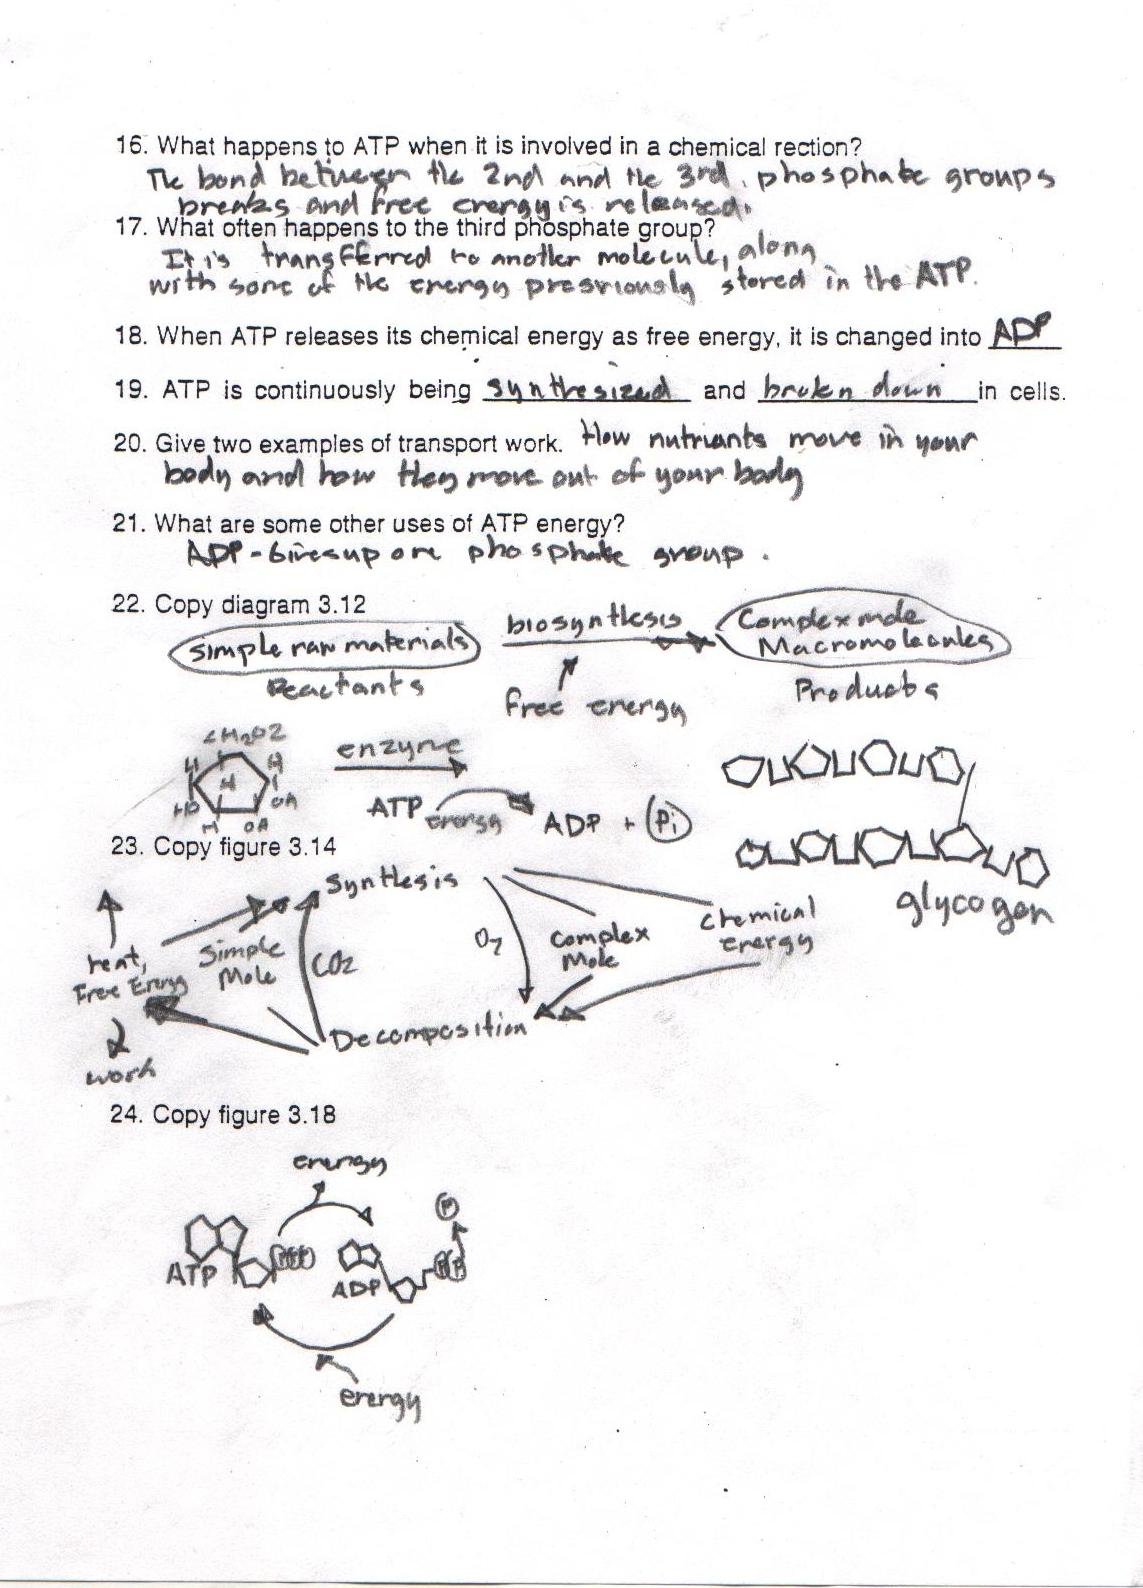 16. What happens to ATP when it is involved in a chemical rection?
The bond between the 2nd and the 3rd phosphate groups
breaks and free energy is released.
17. What often happens to the third phosphate group?
It is transfferred to another molecule, along
with some of the energy presviously stored in the ATP.
18. When ATP releases its chemical energy as free energy, it is changed into ADP
19. ATP is continuously being synthesized and broken down in cells.
20. Give two examples of transport work. How nutriants move in your
body and how they move out of your body
21. What are some other uses of ATP energy?
ADP - Gives up one phosphate group.
22. Copy diagram 3.12
Simple raw materials
Reactants
biosynthesis
free energy
Complex mole
Macromolecules
Products
H
H
H
HO
H
OH
enzyme
ATP energy ADP + Pi
glycogen
23. Copy figure 3.14
Synthesis
heat,
Free Energy
work
Simple
Mole
CO2
O2
Complex
Mole
chemical
energy
Decomposition
24. Copy figure 3.18
energy
ATP
ADP
P
P P
energy